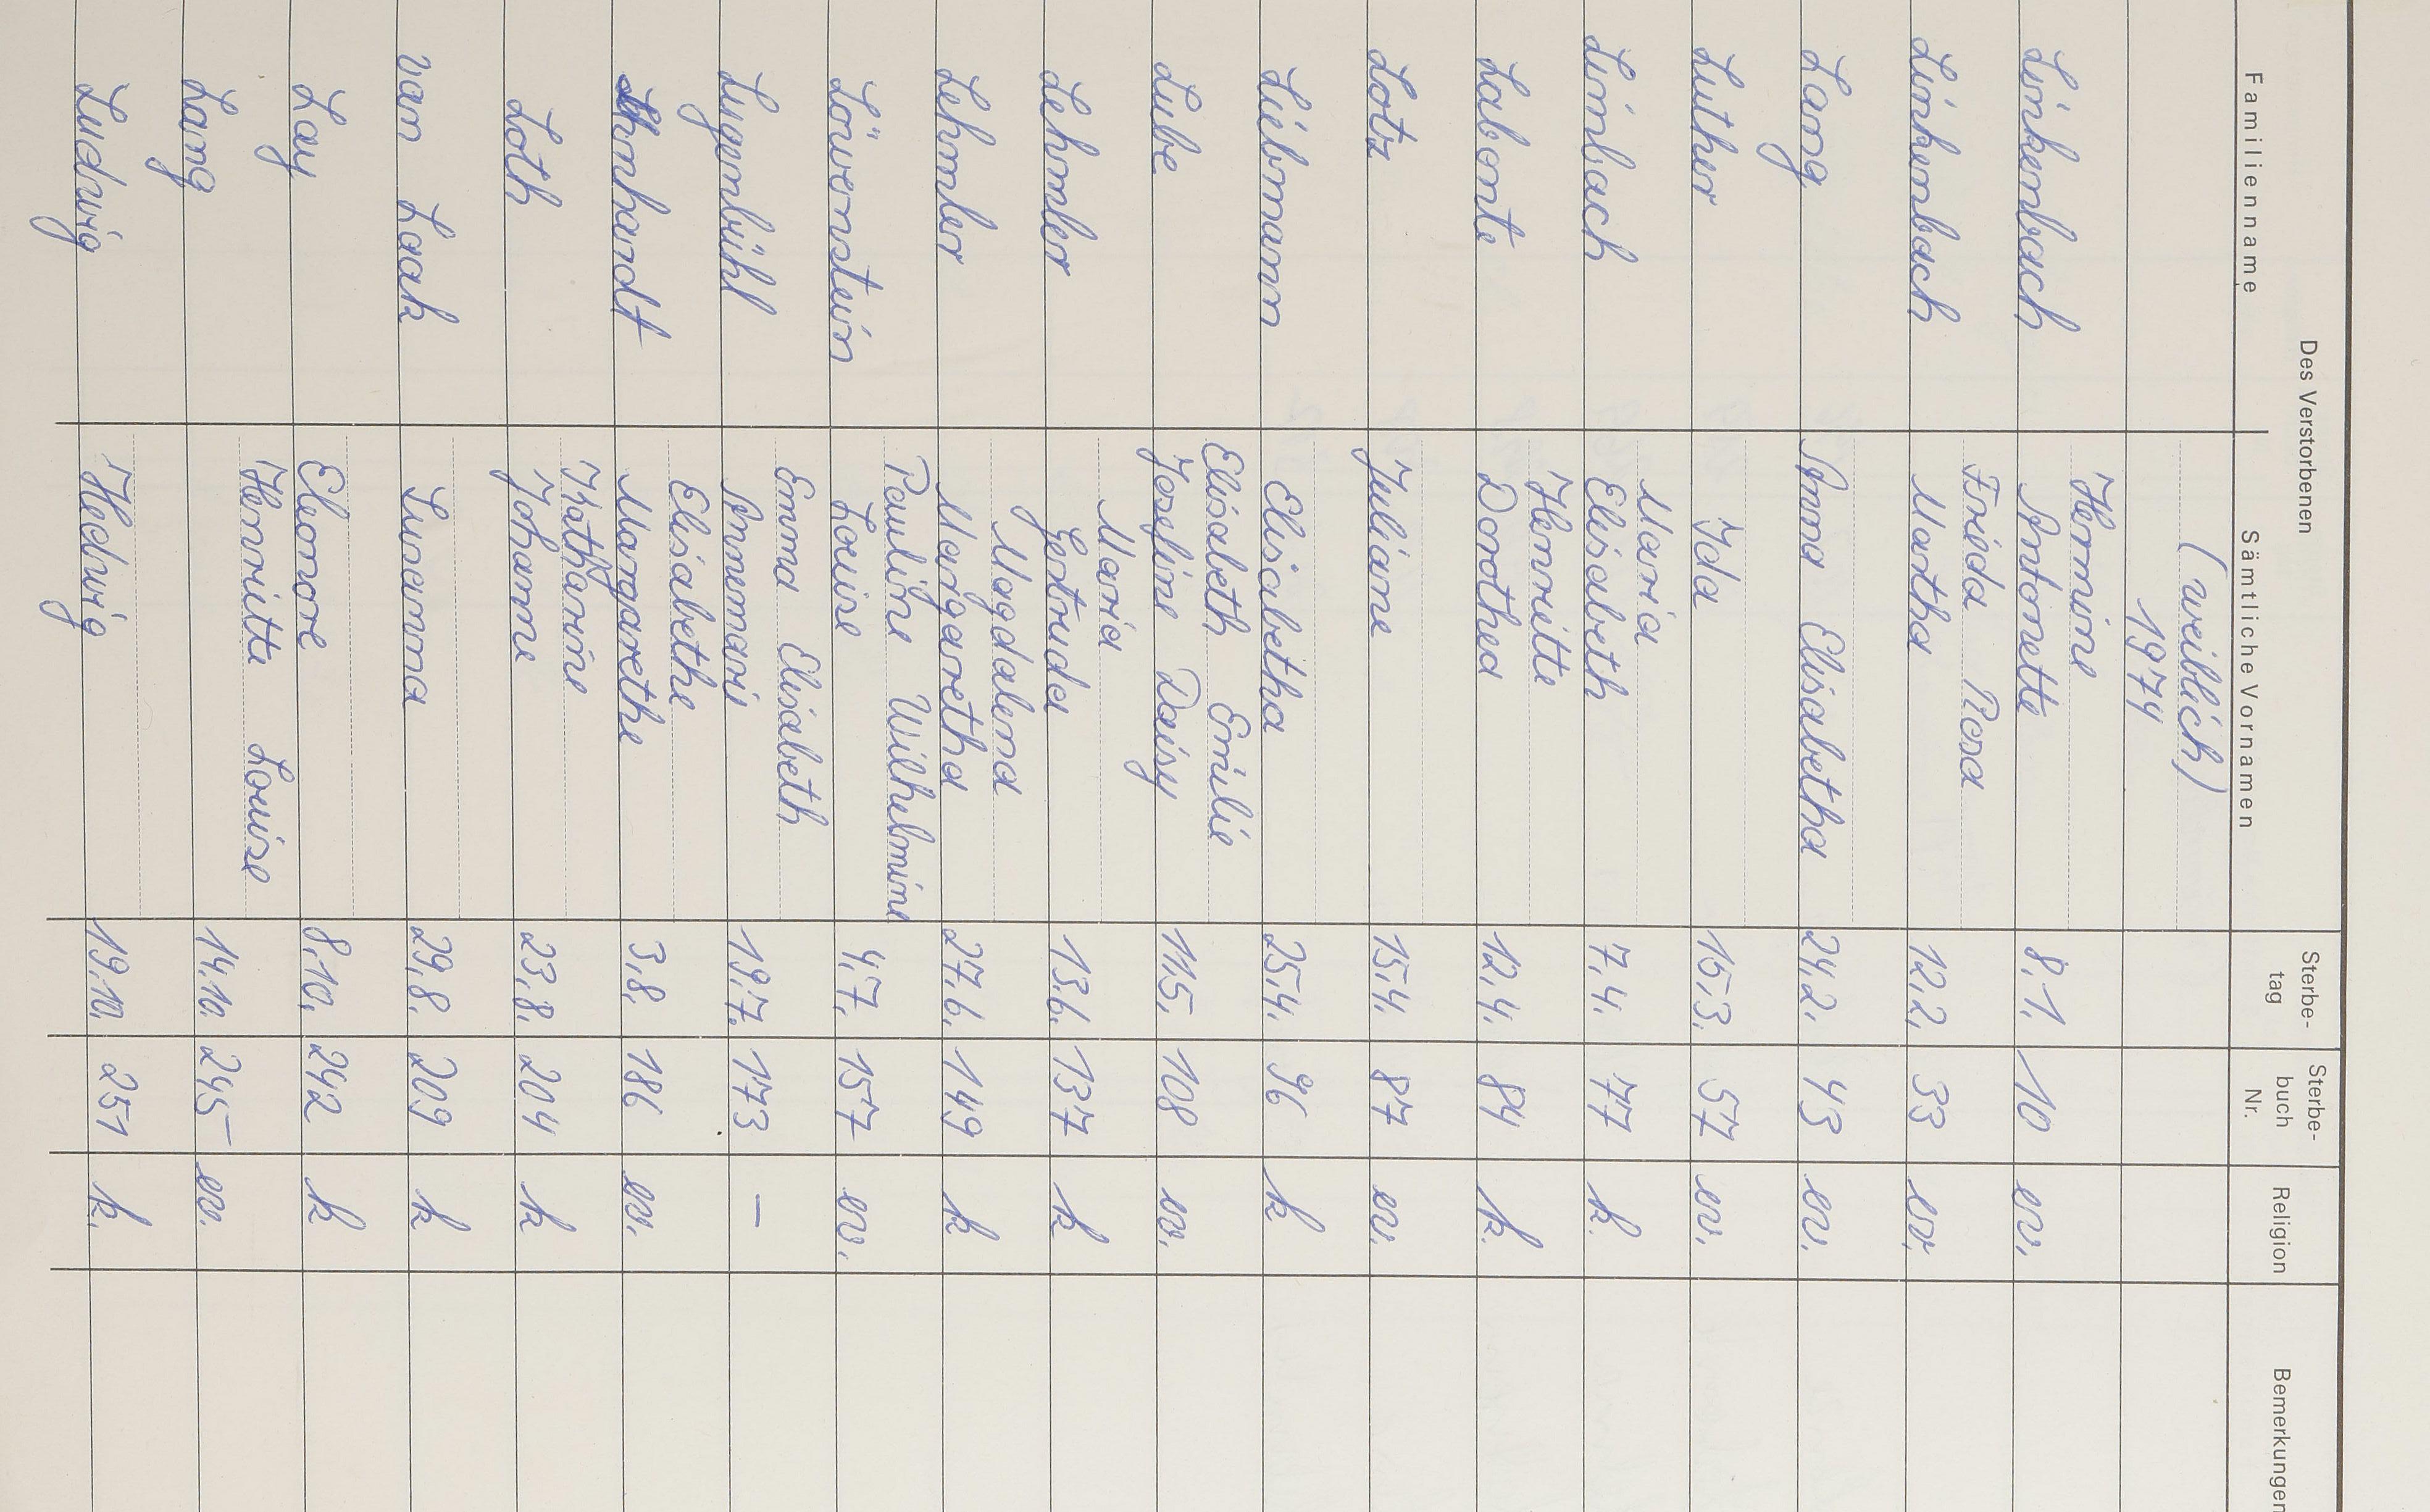 Des Verstorbenen
Familienname Sämtliche Vornamen Sterbe-
tag Sterbe-
buch
Nr. Religion Bemerkungen
(weiblich)
1974
Hermine
Linkenbach Antonette 8.1. 10 ev.
Frida Rosa
Linkenbach Martha 12.2. 33 ev.
Lang Anna Elisabetha 24.2. 43 ev.
Luther Ida 15.3. 57 ev.
Maria
Limbach Elisabeth 7.4. 77 k.
Henriette
Labonte Dorothea 12.4. 84 k.
Lotz Juliane 15.4. 87 ev.
Liebmann Elisabetha 25.4. 96 k
Elisabeth Emilie
Lube Josefine Daisy 11.5. 108 ev.
Maria
Lehmler Gertrude 13.6. 137 k
Magdalena
Lehmler Margaretha 27.6. 149 k
Pauline Wilhelmine
Löwenstein Louise 4.7. 157 ev.
Emma Elisabeth
Lugenbühl Annemarie 19.7. 173 –
Elisabethe
Lehnhardt Margarethe 3.8. 186 ev.
Katharine
Loth Johanne 23.8. 204 k
van Laak Susanna 29.8. 209 k
Lay Eleonore 8.10. 242 k
Henriette Louise
Lang 14.10. 245 ev.
Ludwig Hedwig 19.10. 251 k.